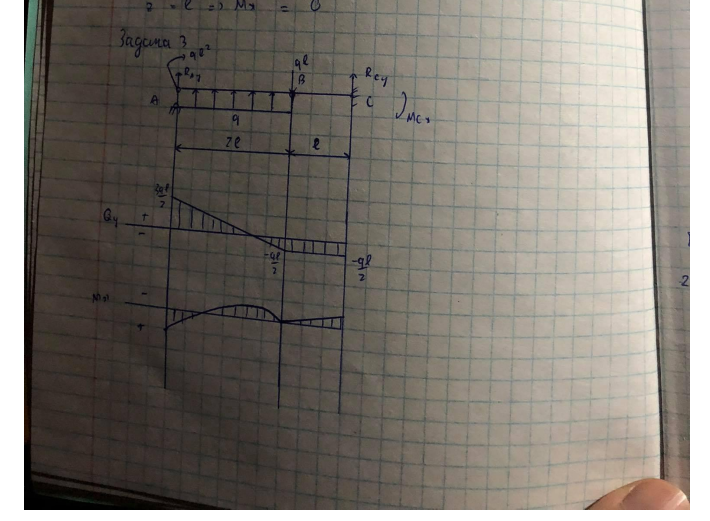 z = l => Mx = 0
Задача 3
ql²
ql
RAy
B
RCy
A
C
MCx
q
2l
l
3ql/2
Qy
+
-
-ql/2
-ql/2
Mx
-
+